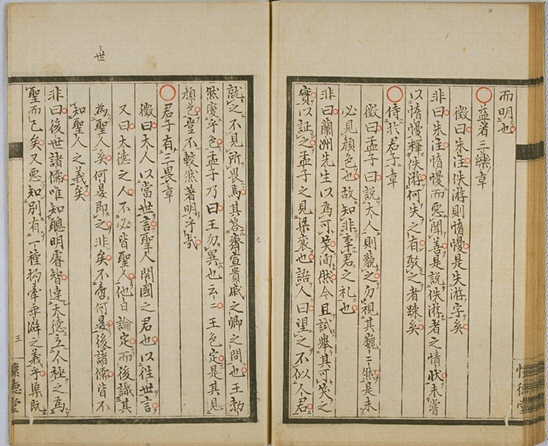 而明也
○益者三樂章
徵曰朱注佚游則惰慢是失游字矣
非曰朱注惰慢而惡聞善是說佚游者之情狀未嘗
以惰慢釋佚游何失之有駁之者疎矣
○侍於君子章
徵曰孟子曰說大人則藐之勿視其巍〻然是未
必見顏色也故知非事君之礼也
非曰蘭洲先生以爲可笑洵然今且試擧其可笑之
實以証之孟子之見梁襄也語人曰望之不似人君
世
就之不見所畏焉其答齊宣貴戚之卿之問也王勃
然變乎色孟子乃曰王勿異也云〻王色定是其見
顏色豈不較然著明乎哉
○君子有三畏章
徵曰大人以當世言聖人開國之君也以往世言
又曰大德之人不必皆聖人他日論定而後識其
爲聖人矣何晏即之非矣不啻何晏後諸儒皆不
知聖人之義矣
非曰後世諸儒唯知聰明睿智達大德立人極之爲
聖而已矣又惡知別有一種拘牽乖游之義乎
三
懷德堂